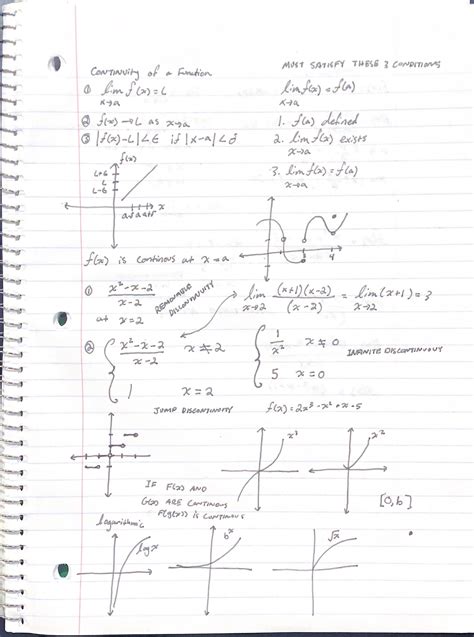 CONTINUITY of a Function
MUST SATISFY THESE 3 CONDITIONS
① lim f(x) = L
x→a
lim f(x) = f(a)
x→a
② f(x)→L as x→a
1. f(a) defined
③ |f(x)-L| < ε if |x-a| < δ
2. lim f(x) exists
x→a
3. lim f(x) = f(a)
x→a
f(x)
L+ε
L
L-ε
x
a-δ a a+δ
1 3 4
f(x) is continous at x→a
① x²-x-2
x-2
at x=2
REMOVABLE
DISCONTINUITY
lim (x+1)(x-2) = lim (x+1) = 3
x→2 (x-2) x→2
② { x²-x-2 x≠2
x-2
1 x=2
{ 1 x≠0
x²
5 x=0
INFINITE DISCONTINUOUS
JUMP DISCONTINUITY
f(x) = 2x³-x²+x-5
x³
x²
[0,b]
IF F(x) AND
G(x) ARE CONTINOUS
F(g(x)) IS CONTINOUS
logarithmic
log x
bˣ
√x